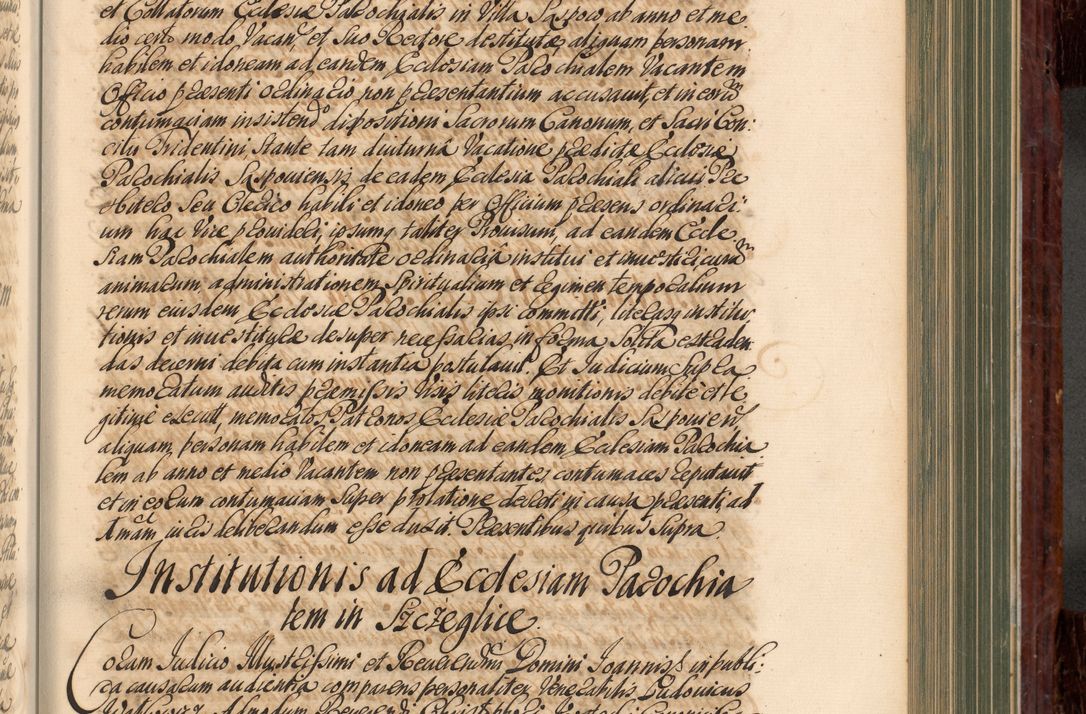 et Collatorum Ecclesiæ Parochialis in Villa Saspow ab anno et me
dio certo modo Vacan, et suo Rectore destitutæ aliquam personam
habilem et idoneam ad eandem Ecclesiam Parochialem Vacantem
Officio præsenti ordinario non præsentantium accusavit, et in eorum
contumaciam insistendo dispositioni Sacrorum Canonum, et Sacri Con:
cilii Tridentini, stante tam diuturna Vacatione prædictæ Ecclesiæ
Parochialis Saspoviensis, de eadem Ecclesia Parochiali alicui Præ
sbitero seu Clerico habili et idoneo per Officium præsens ordinari:
um hac Vice provideri, ipsumq taliter Provisum, ad eandem Eccle
siam Parochialem authoritate ordinaria institui et investiri, curam
animarum, administrationem Spiritualium et regimen temporalium
rerum eiusdem Ecclesiæ Parochialis ipsi committi, literasq institu
tionis et investituræ desuper necessarias, in forma solita extraden
das decerni debita cum instantia postulavit. Et Judicium supra
memoratum auditis præmissis Visis literis monitionis debite et le
gitime execut, memoratos Patronos Ecclesiæ Parochialis Saspovien,
aliquam personam habilem et idoneam ad eandem Ecclesiam Parochia
lem ab anno et medio Vacantem non præsentantes, contumaces reputavit
et in eorum contumaciam super prolatione decreti in causa præsenti, ad
Amam juris deliberandum esse duxit. Præsentibus quibus supra.
Institutionis ad Ecclesiam Parochia
lem in Szczeglice.
Coram Judicio Illustrissimi et Reverendmi Domini Joannis in publi:
ca causarum audientia comparens personaliter Venerabilis Ludovicus
Admodum Reverendi Christophori